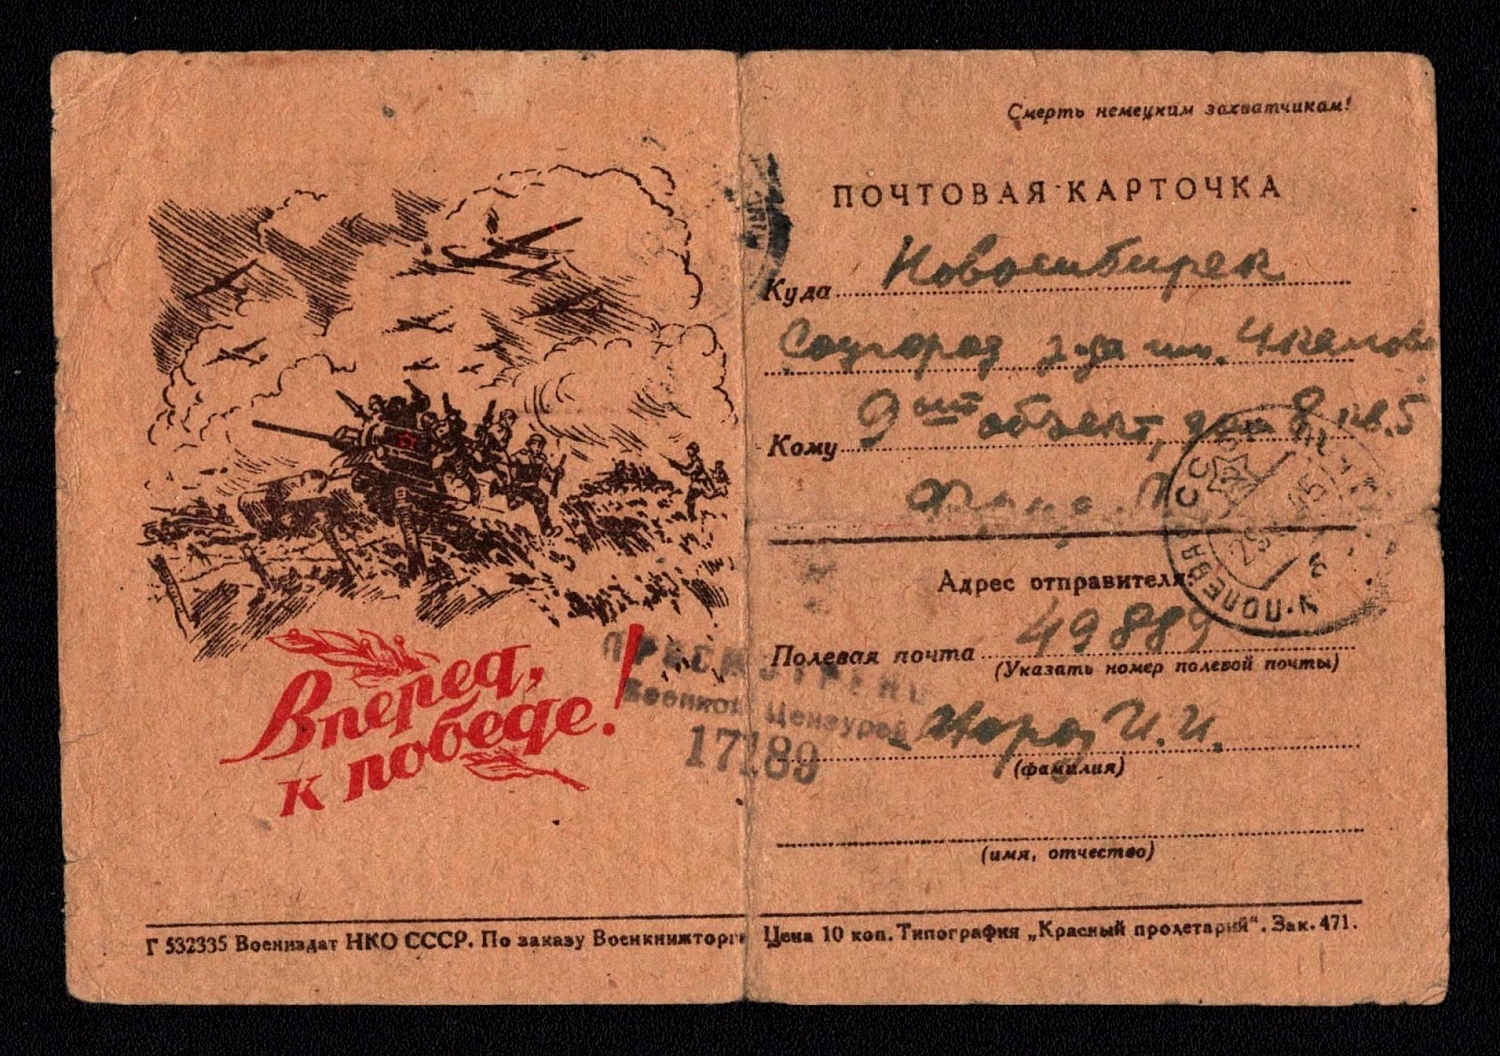 Смерть немецким захватчикам!
ПОЧТОВАЯ КАРТОЧКА
Куда Новосибирск
Соцгород з-да им. Чкалова
Кому 9ый объект, дом 8, кв. 5
Адрес отправителя:
49889
Полевая почта
(Указать номер полевой почты)
Мороз И. И.
(фамилия)
(имя, отчество)
Вперед,
к победе!
ПРОСМОТРЕНО
Военной Цензурой
17189
СССР
ПОЛЕВАЯ
Г 532335 Воениздат НКО СССР. По заказу Военкнижторга Цена 10 коп. Типография „Красный пролетарий“. Зак. 471.